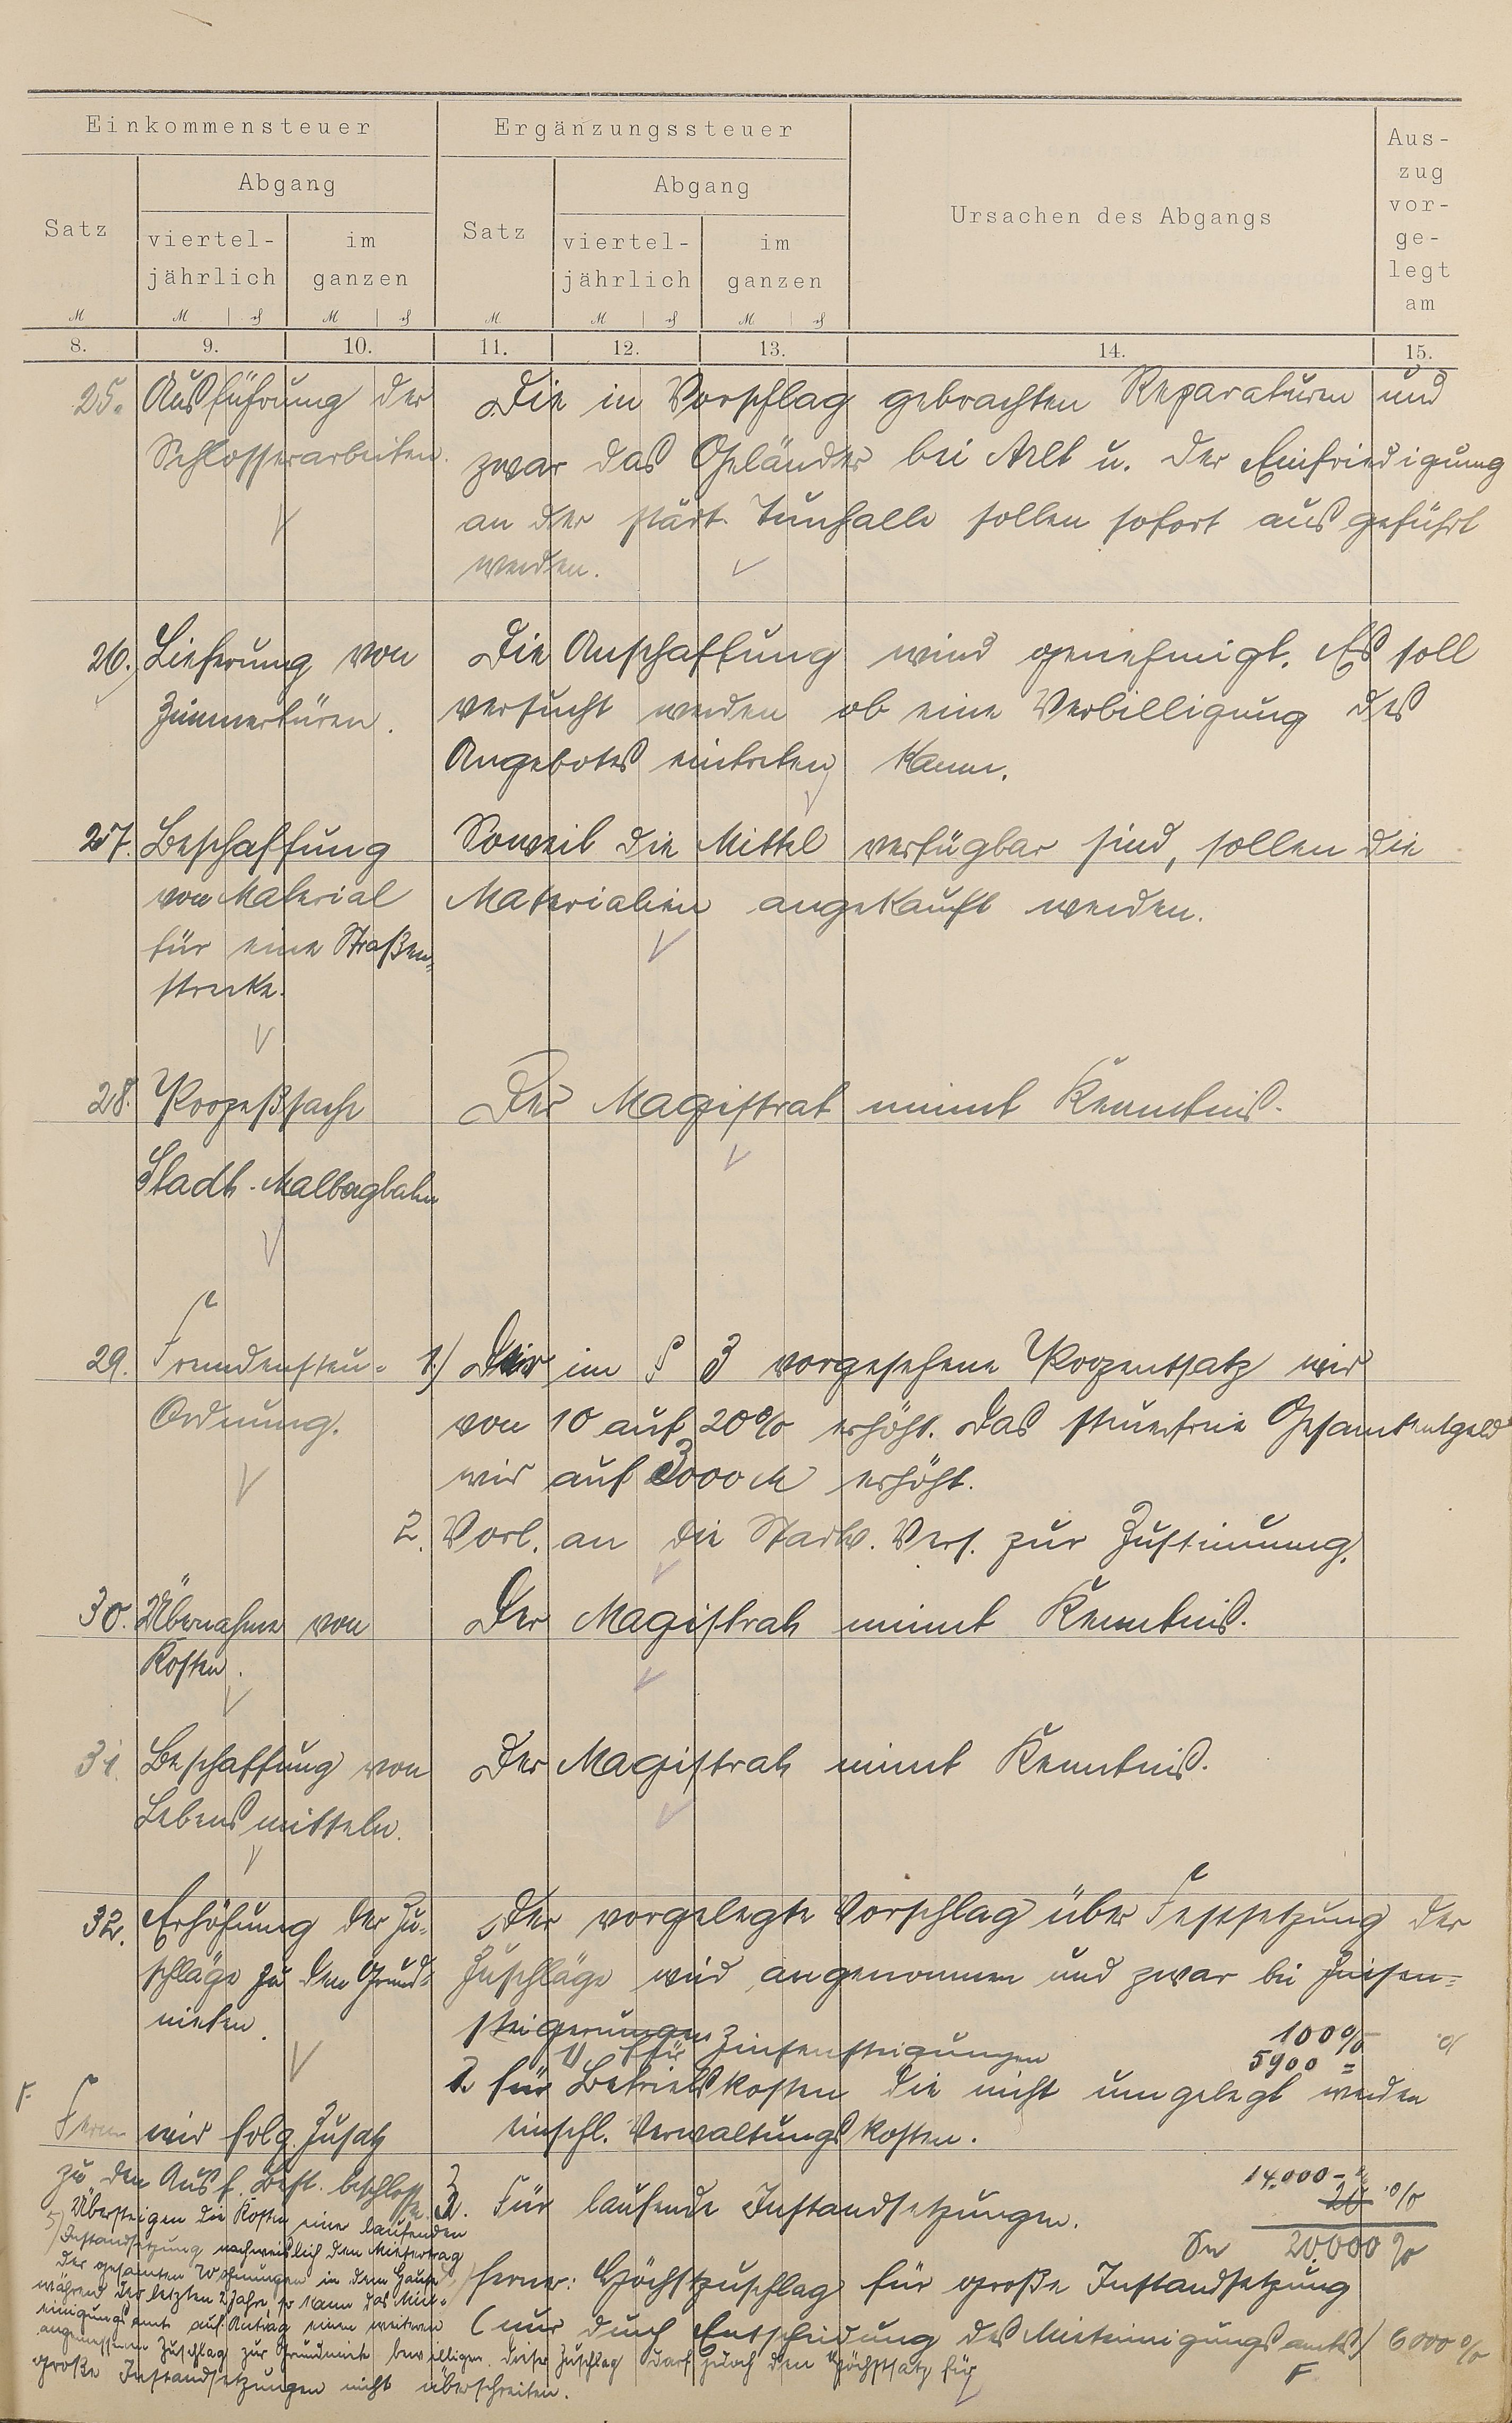 Einkommensteuer
Ergänzungssteuer
Ursachen des Abgangs
Aus-
zug
vor-
ge-
legt
am
Satz
Abgang
viertel-
jährlich
im
ganzen
Satz
Abgang
viertel-
jährlich
im
ganzen
M M ₰ M ₰ M M ₰ M ₰
8. 9. 10. 11. 12. 13. 14. 15.
25. Ausführung der
Schlosserarbeiten.
Die in Vorschlag gebrachten Reparaturen und
zwar das Geländer bei Arlt u. der Einfriedigung
an der städt. Turnhalle sollen sofort ausgeführt
werden.
26.) Lieferung von
Zimmertüren.
Die Anschaffung wird genehmigt. Es soll
versucht werden ob eine Verbilligung des
Angebotes eintreten kann.
27. Beschaffung
von Material
für eine Straßen-
strecke.
Soweit die Mittel verfügbar sind, sollen die
Materialien angekauft werden.
28. Prozeßsache
Stadt-Malbergbahn
Der Magistrat nimmt Kenntnis.
29. Fremdensteu-
Ordnung.
1.) Der im § 3 vorgesehene Prozentsatz wird
von 10 auf 20% erhöht. Das steuerfreie Gesamtentgeld
wird auf 3000 M erhöht.
2. Vorl. an die Stadtv. Vers. zur Zustimmung.
30. Übernahme von
Kosten.
Der Magistrat nimmt Kenntnis.
31. Beschaffung von
Lebensmitteln.
Der Magistrat nimmt Kenntnis.
32. Erhöhung der Zu-
schläge zu den Grund-
mieten.
Der vorgelegte Vorschlag über Festsetzung der
Zuschläge wird angenommen und zwar bei Zinsen-
steigerungen
1) für Zinsensteigungen 100%
5900 =
2. für Betriebskosten die nicht umgelegt werden
einschl. Verwaltungskosten.
3. Für laufende Instandsetzungen. 14.000 - %
Sa 20.000 %
ferner: Höchstzuschlag für große Instandsetzung
(nur durch Entscheidung des Mieteinigungsamts) 6000 %
F
F. Ferner wird folg. Zusatz
zu den Ausf. Best. beschlossen.
5) Übersteigen die Kosten eine laufenden
Instandsetzung nachweislich den Mietertrag
der gesamten Wohnungen in dem Hause
während der letzten 2 Jahre, so kann das Miet-
einigungsamt auf Antrag einen weiteren
angemessenen Zuschlag zur Grundmiete bewilligen. Dieser Zuschlag darf jedoch den Höchstsatz für
große Instandsetzungen nicht überschreiten.